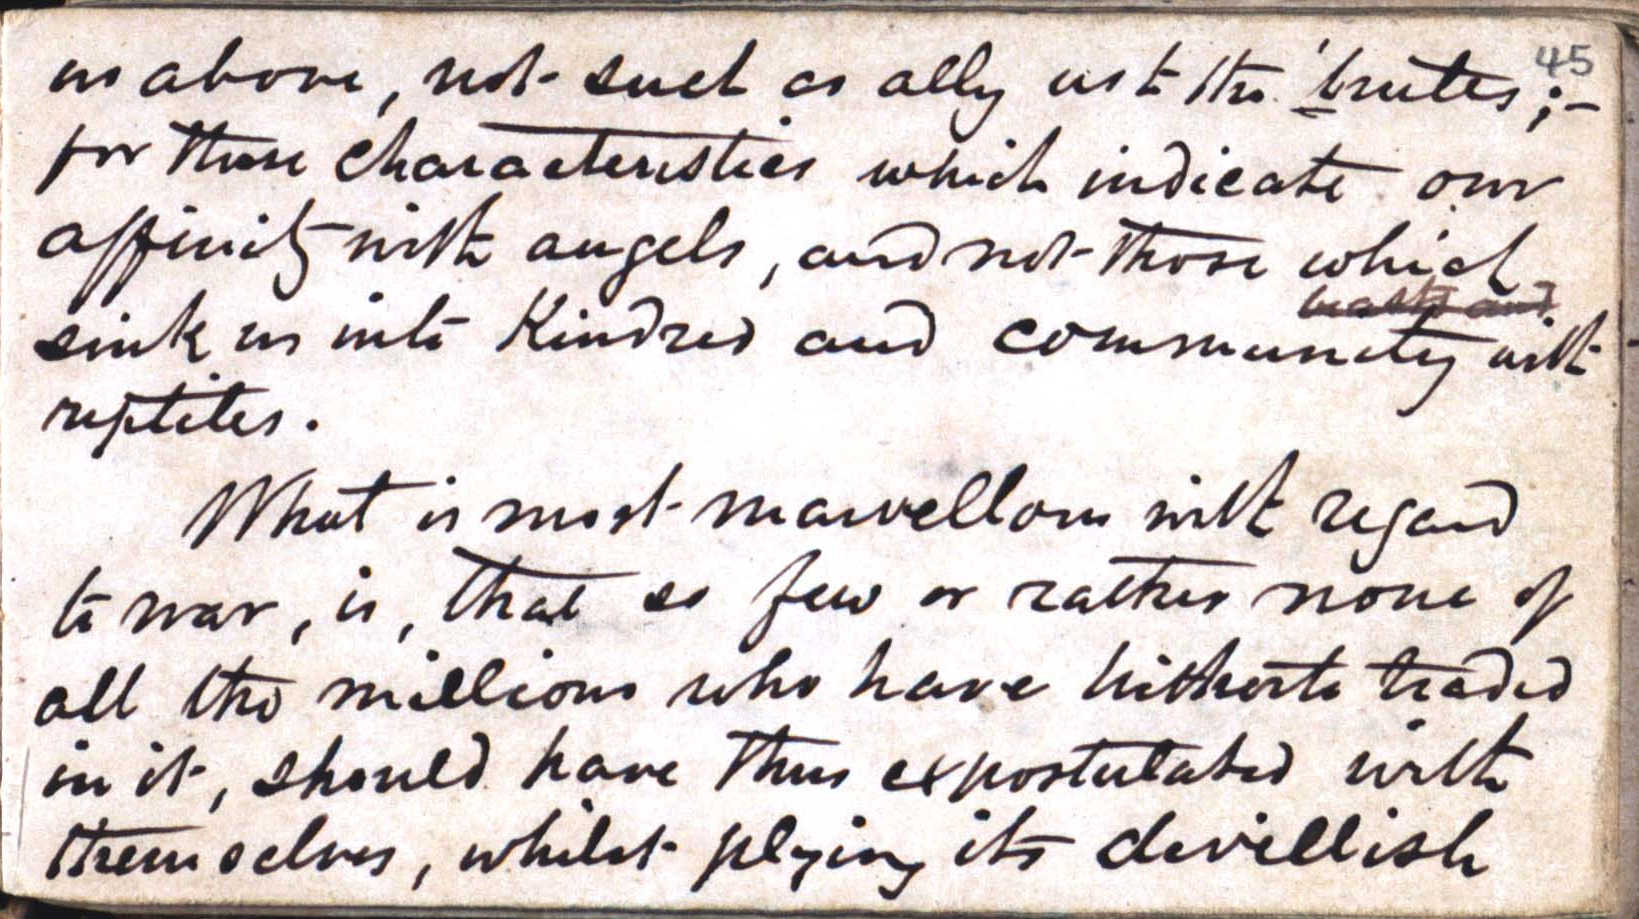 45
us above, not such as ally us to the 'brutes;-
for those characteristics which indicate our
affinity with angels, and not those which
beasts and
sink us into Kindred and community with
reptiles.
What is most marvellous with regard
to war, is, that so few or rather none of
all the millions who have hitherto traded
in it, should have thus expostulated with
themselves, whilst plying its devillish